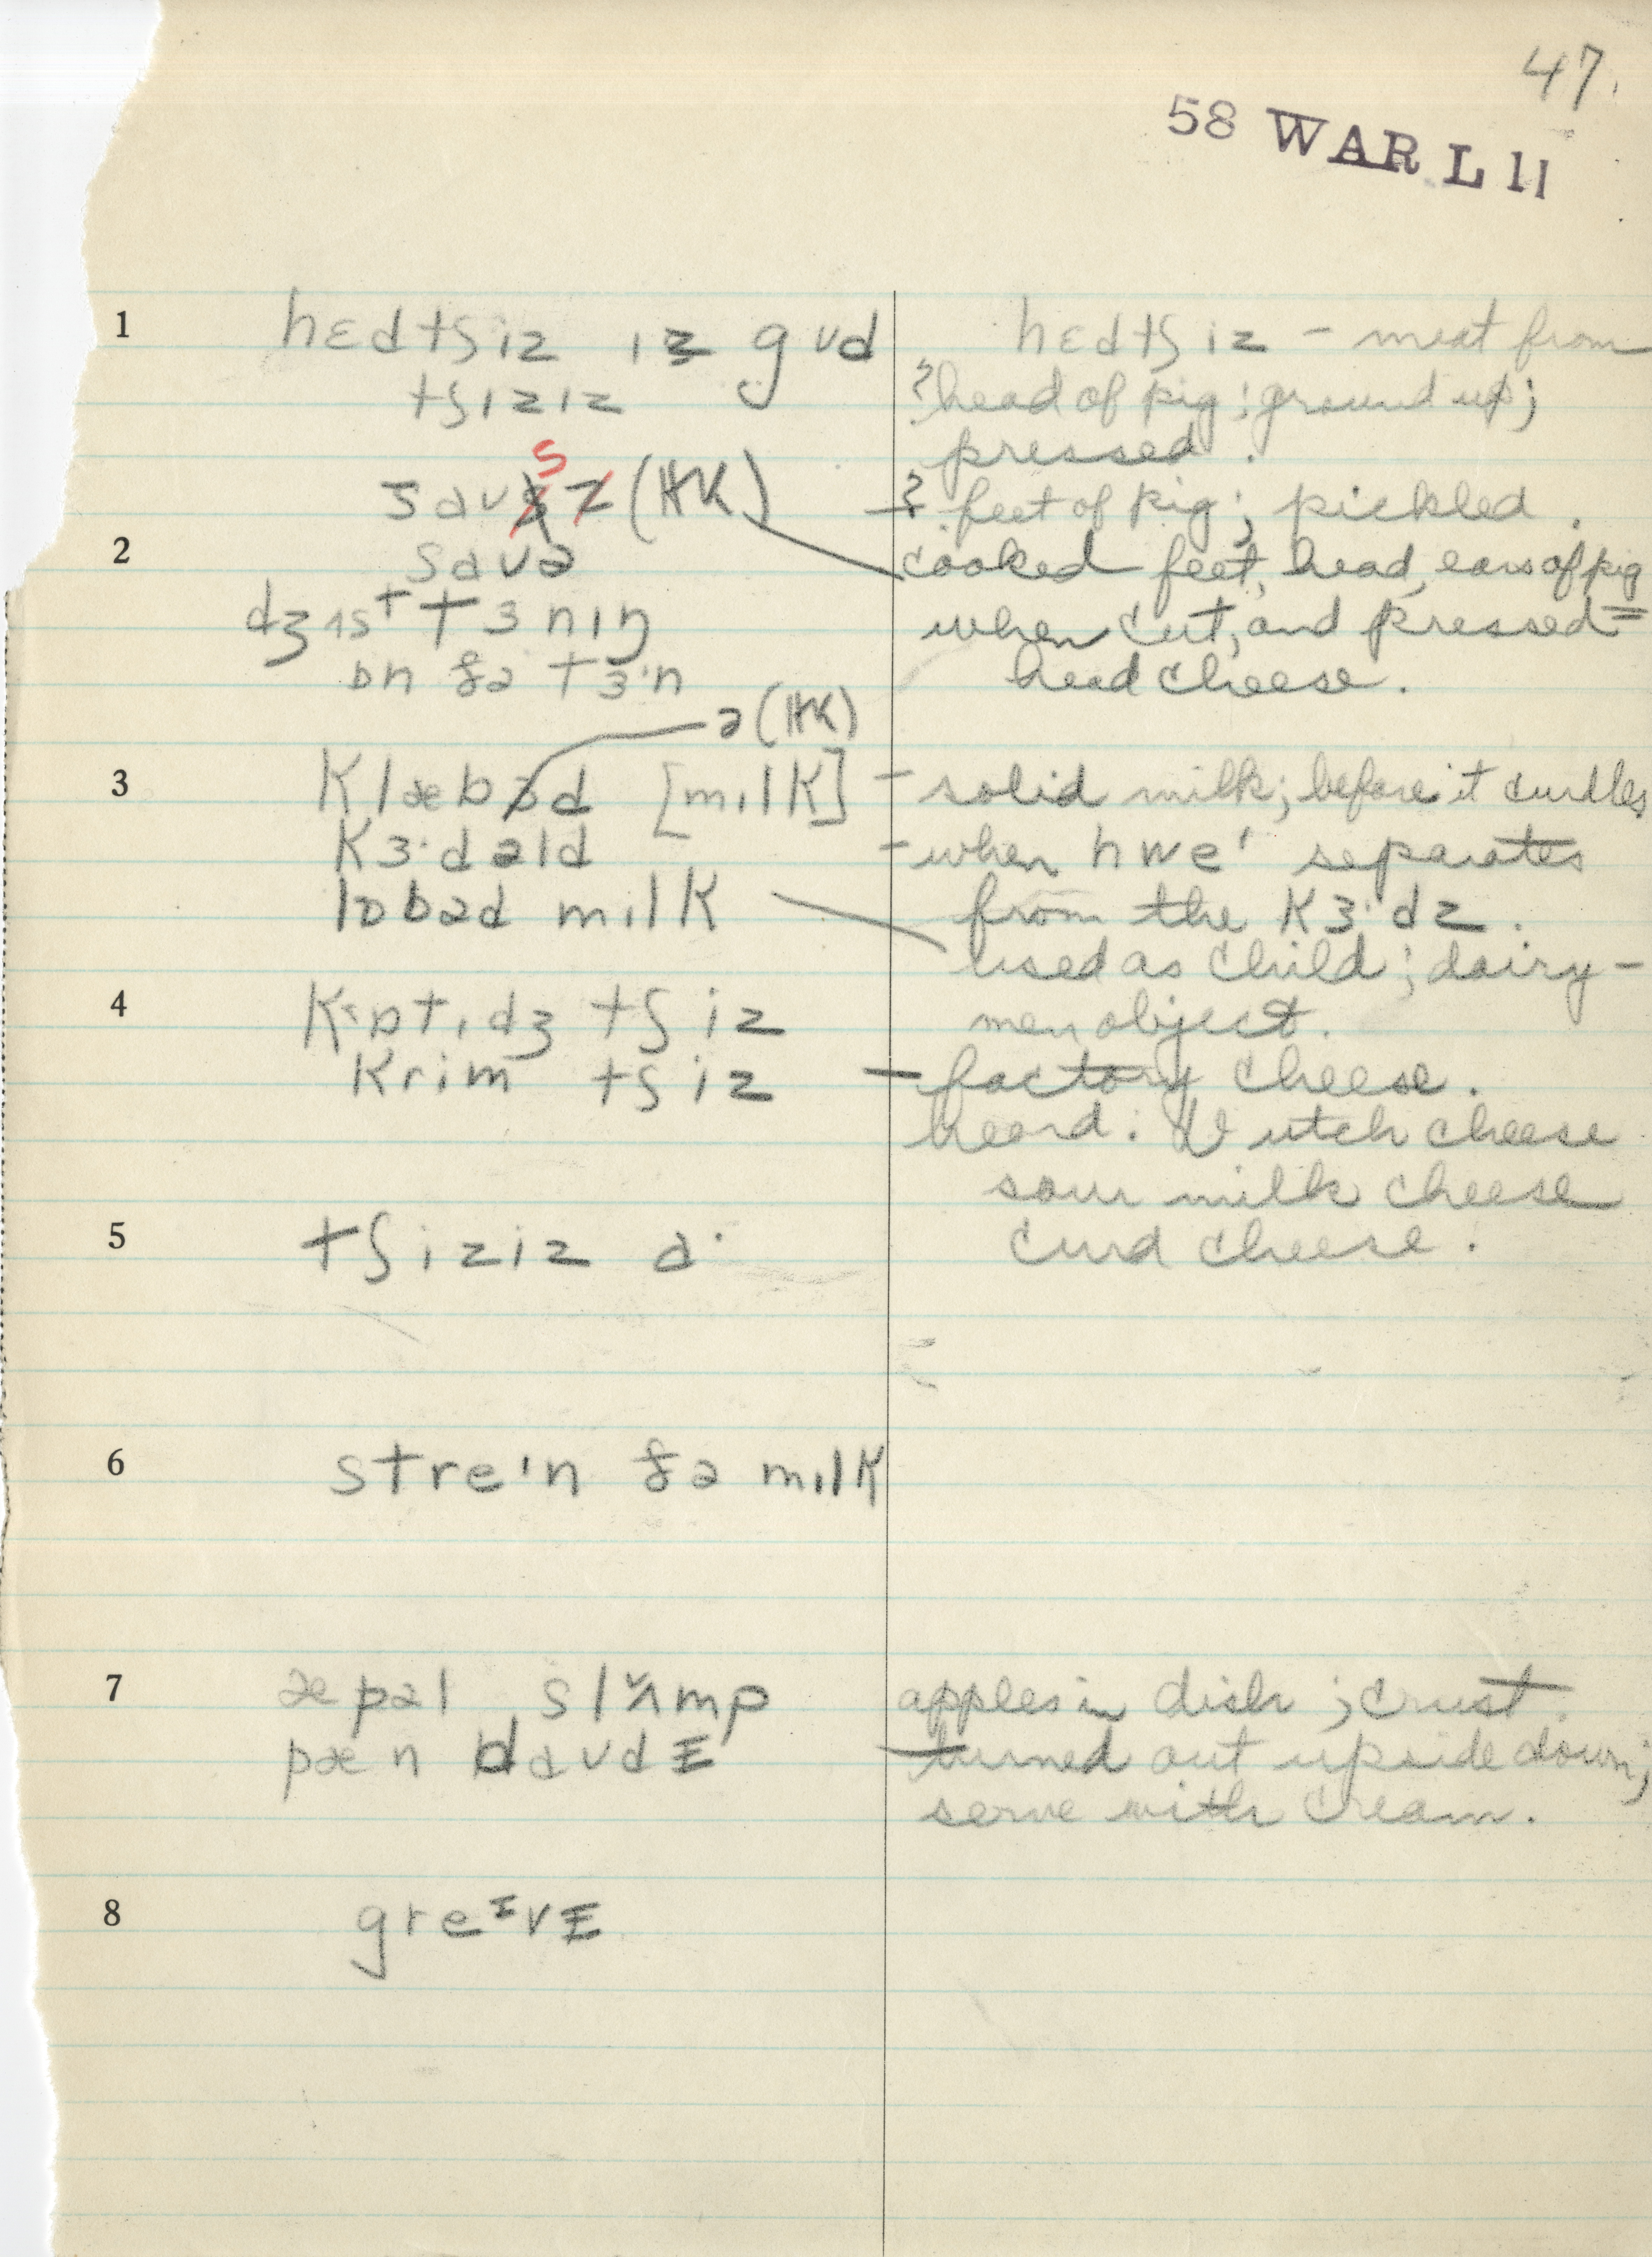 47.
58 WAR L 11
1 hɛdtʃiz ɪz gʊd hɛdtʃiz - meat from
tʃiziz ? head of pig; ground up;
pressed.
saʊs (HK) - ? feet of pig; pickled.
2 saʊə cooked feet, head, ears of pig
dʒʌst tɜnɪŋ when cut, and pressed =
ɒn ðə tɜ·n head cheese.
ə (HK)
3 klæbəd [mɪlk] - solid milk; before it curdles
kɜ·dəld - when hwe' separates
lɒbəd mɪlk from the kɜ·dz.
used as child; dairy-
4 kɒtɪdʒ tʃiz men object.
krim tʃiz - factory cheese.
heard: Dutch cheese
sour milk cheese
5 tʃiziz a· curd cheese.
6 streɪn ðə mɪlk
7 æpəl slʌmp apples in dish; crust.
pæn daʊdɪ turned out upside down;
serve with cream.
8 greɪvɪ